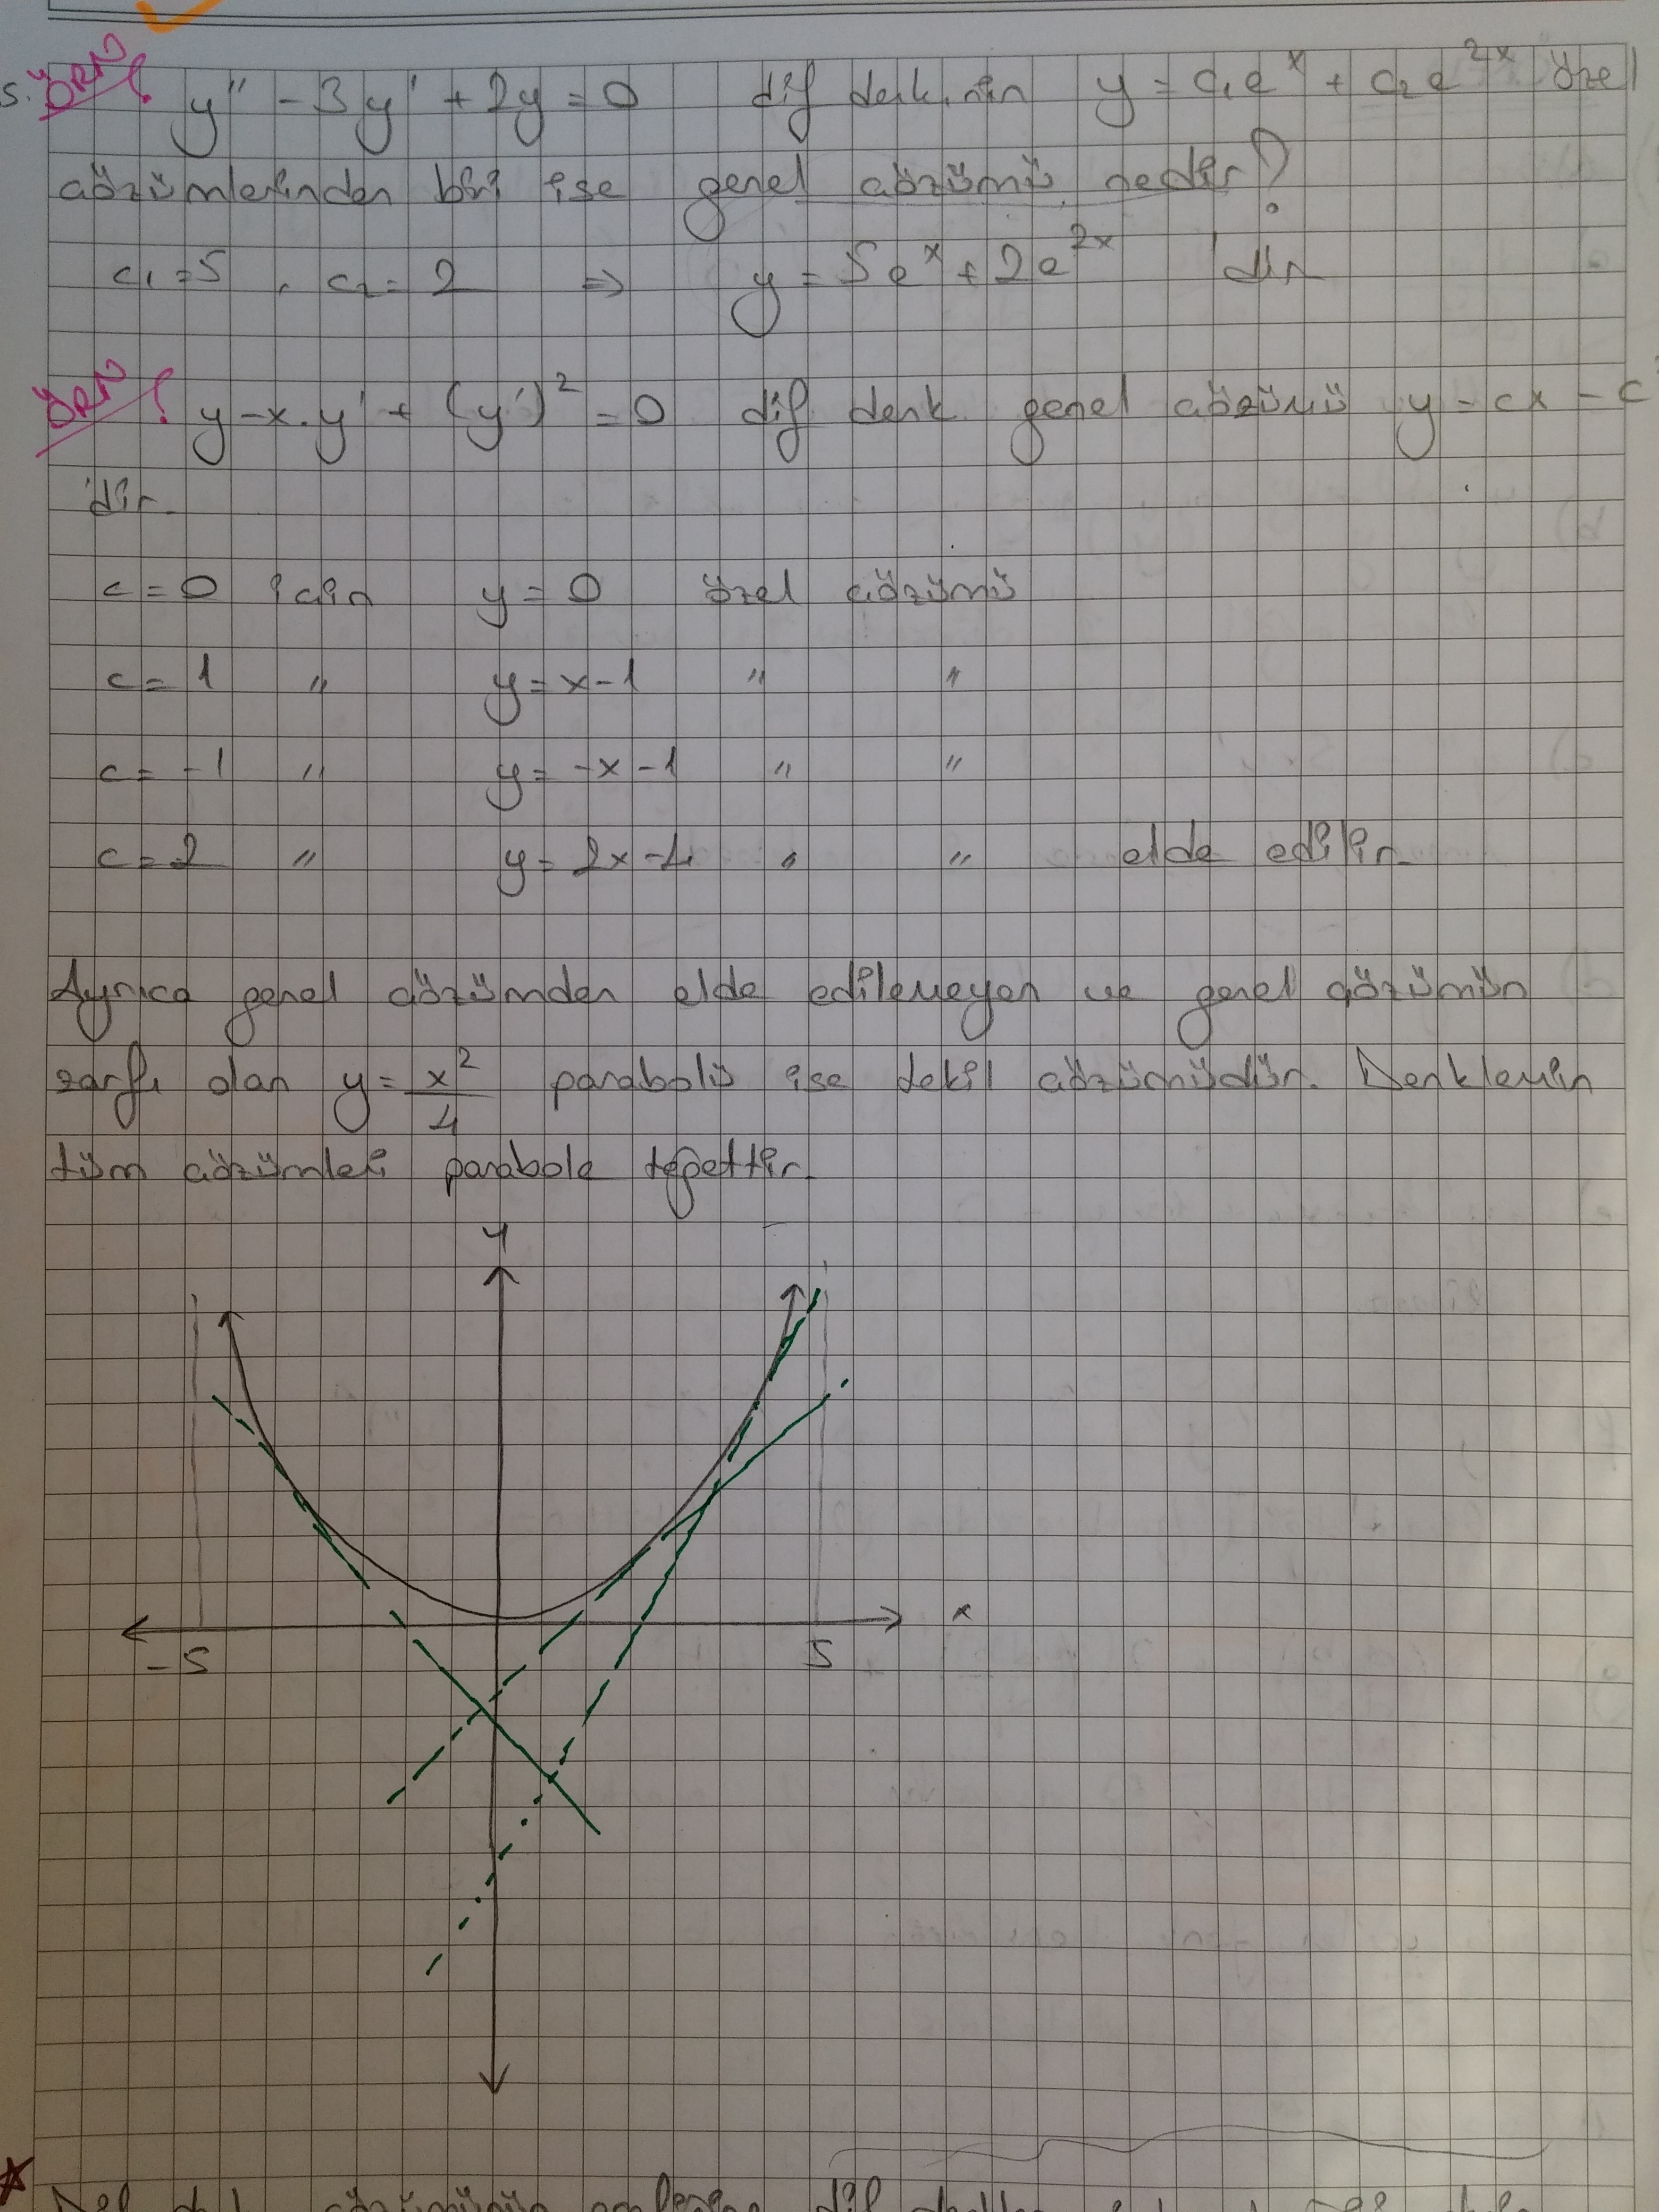 s. ÖRN! y'' - 3y' + 2y = 0 dif denk.nin y = c₁eˣ + c₂e²ˣ özel
çözümlerinden biri ise genel çözümü nedir?
c₁ = 5 , c₂ = 2 ⇒ y = 5eˣ + 2e²ˣ 'dir
ÖRN! y - x.y' + (y')² = 0 dif denk genel çözümü y = cx - c²
'dir.
c = 0 için y = 0 özel çözümü
c = 1 " y = x - 1 " "
c = -1 " y = -x - 1 " "
c = 2 " y = 2x - 4 " " elde edilir.
Ayrıca genel çözümden elde edilemeyen ve genel çözümün
zarfı olan y = x²/4 parabolü ise tekil çözümüdür. Denklemin
tüm çözümleri parabole teğettir.
y
x
-5 5